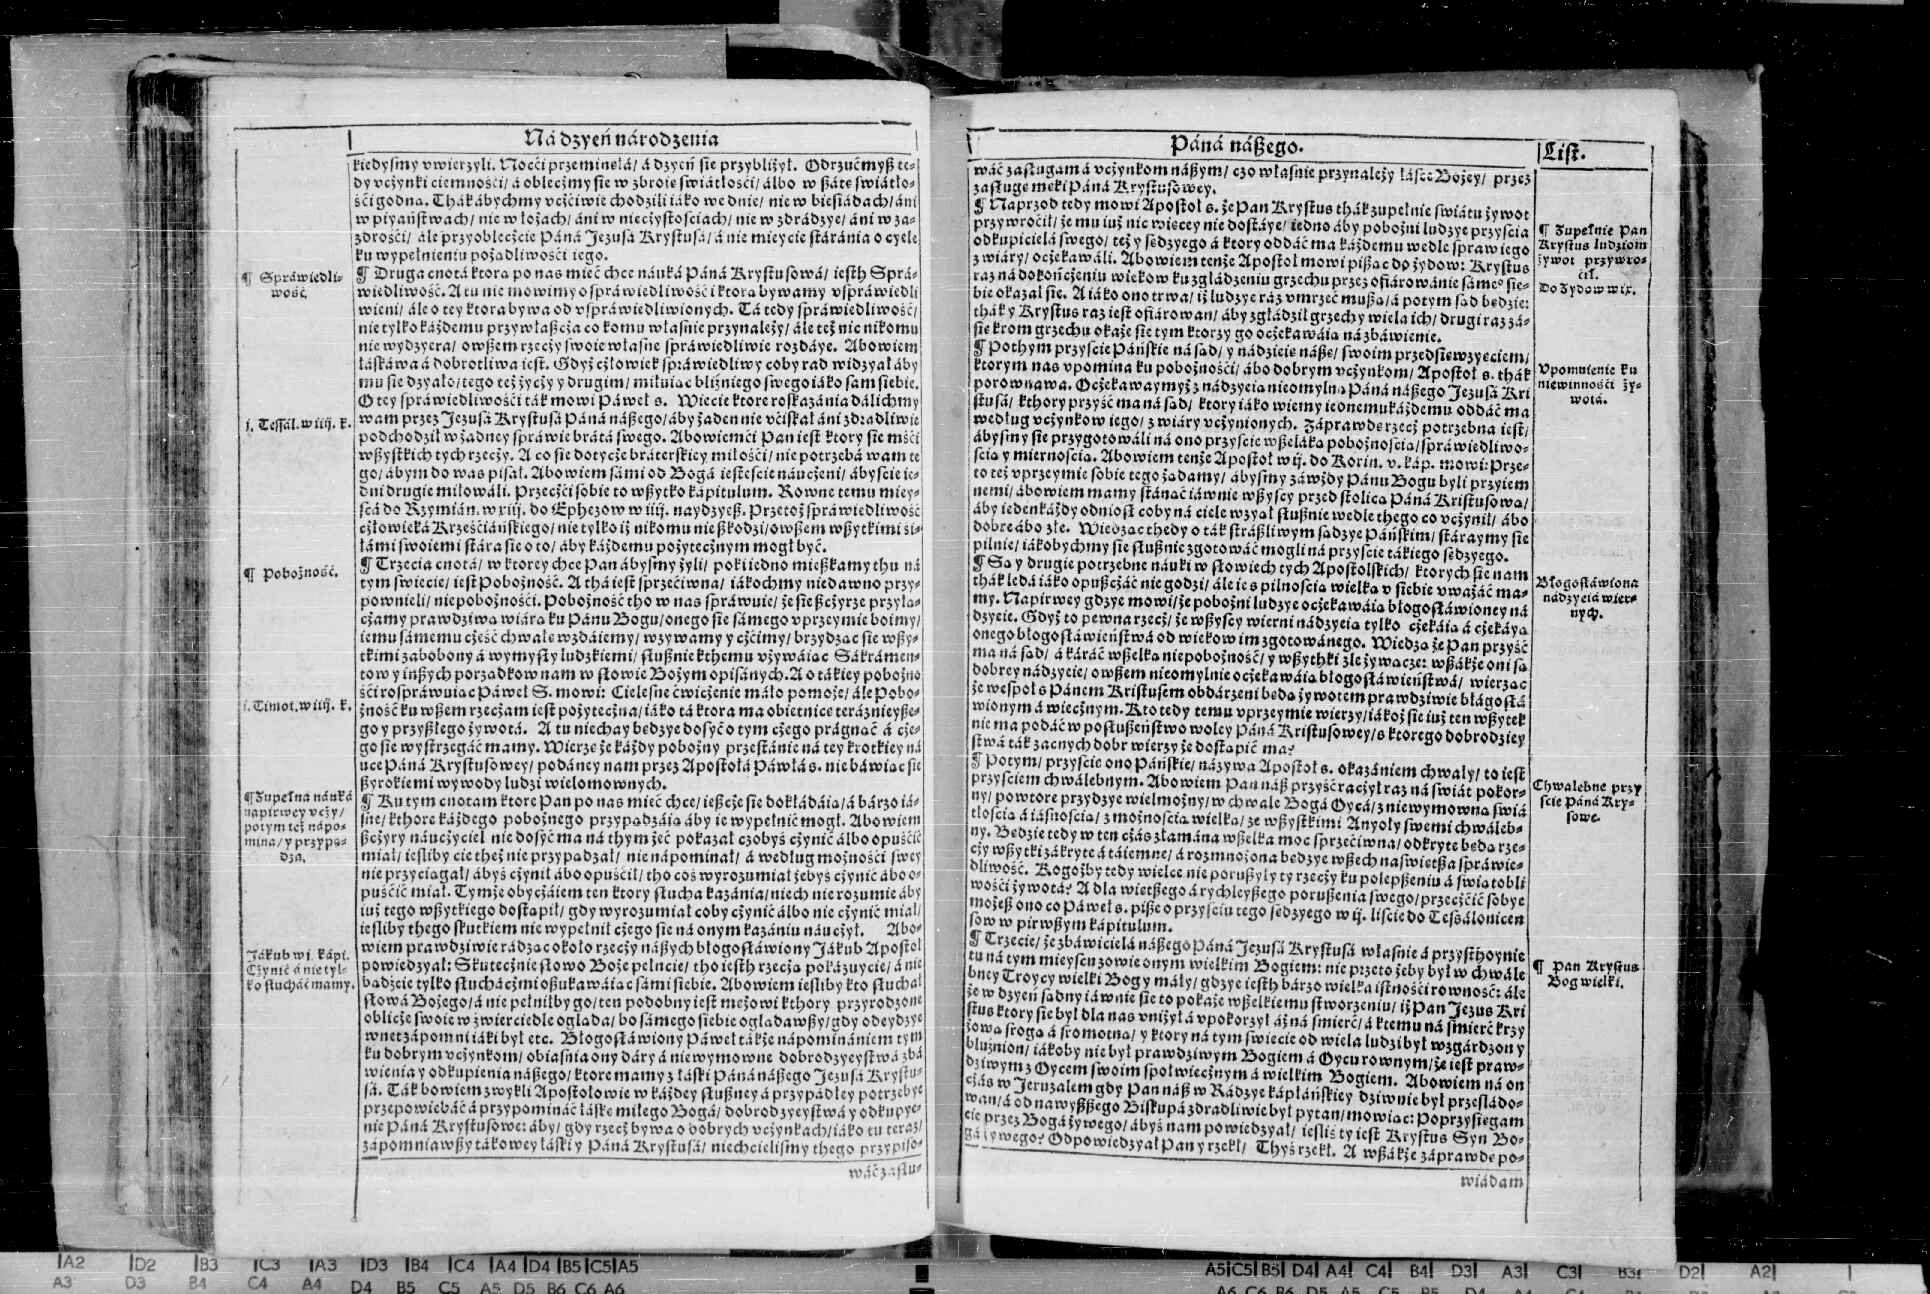 Ná dzyeń národzenia
kiedysmy vwierzyli. Nocći przeminęłá/ á dzyeń sie przybliżył. Odrzućmyß te-
dy vcżynki ciemnośći/ á oblecżmy sie w zbroię świátłośći/ álbo w ßátę świátło-
śći godną. Thák ábychmy vcżćiwie chodzili iáko we dnie/ nie w biesiádách/ áni
w piyáństwách/ nie w łożách/ áni w niecżystościách/ nie w zdrádzye/ áni w za-
zdrośći/ ále przyoblecżcie Páná Jezusá Krystusá/ á nie mieycie stáránia o cyele
ku wypełnieniu pożądliwośći iego.
¶ Spráwiedli-
wość.
¶ Druga cnotá ktorą po nas mieć chce náuká Páná Krystusowá/ iesth Sprá-
wiedliwość. A tu nie mowimy o spráwiedliwośći ktorą bywamy vspráwiedli
wieni/ ále o tey ktora bywa od vspráwiedliwionych. Tá tedy spráwiedliwość/
nie tylko káżdemu przywłaßcża co komu własnie przynależy/ ále też nic nikomu
nie wydzyera/ owßem rzecży swoie własne spráwiedliwie rozdáye. Abowiem
łáskáwa á dobrotliwa iest. Gdyż cżłowiek spráwiedliwy coby rad widzyał áby
mu sie dzyało/ tego też życży y drugim/ miłuiąc bliźniego swego iáko sam siebie.
O tey spráwiedliwośći ták mowi Páweł s. Wiecie ktore roskazánia dálichmy
j. Tessál. w iiij. k.
wam przez Jezusá Krystusá Páná náßego/ áby żaden nie vćiskał áni zdradliwie
podchodził w żadney spráwie brátá swego. Abowiemći Pan iest ktory sie mśći
wßystkich tych rzecży. A co sie dotycże bráterskiey miłośći/ nie potrzebá wam te
go/ ábym do was pisał. Abowiem sámi od Bogá iesteście náucżeni/ ábyście ie-
dni drugie miłowáli. Przecżći sobie to wßytko kápitulum. Rowne temu miey-
scá do Rzymián. w xiij. do Ephezow w iiij. naydzyeß. Przetoż spráwiedliwość
cżłowieká Krześćiáńskiego/ nie tylko iż nikomu nie ßkodzi/ owßem wßytkimi si-
łámi swoiemi stára sie o to/ áby káżdemu pożytecżnym mogł być.
¶ Pobożność.
¶ Trzecia cnotá/ w ktorey chce Pan ábysmy żyli/ poki iedno mießkamy thu ná
tym świecie/ iest Pobożność. A thá iest sprzećiwna/ iákochmy niedawno przy-
pownieli/ niepobożnośći. Pobożność tho w nas spráwuie/ że sie ßcżyrze przyłą-
cżamy prawdziwą wiárą ku Pánu Bogu/ onego sie sámego vprzeymie boimy/
iemu sámemu cżeść chwałę wzdáiemy/ wzywamy y cżćimy/ brzydząc sie wßy-
tkimi zabobony á wymysły ludzkiemi/ słußnie kthemu vżywáiąc Sákrámen-
tow y inßych porządkow nam w słowie Bożym opisánych. A o tákiey pobożno
śći rospráwuiąc Páweł S. mowi: Cielesne ćwicżenie máło pomoże/ ále Pobo-
i. Timot. w iiij. k.
żność ku wßem rzecżam iest pożytecżna/ iáko tá ktora ma obietnice teráznieyße-
go y przyßłego żywotá. A tu niechay będzye dosyć o tym cżego prágnąć á cże-
go sie wystrzegáć mamy. Wierzę że káżdy pobożny przestánie ná tey krotkiey ná
uce Páná Krystusowey/ podáney nam przez Apostołá Páwłá s. nie báwiąc sie
ßyrokiemi wywody ludzi wielomownych.
¶ Zupełna náuká
napirwey vcży/
potym też nápo-
mina/ y przypę-
dza.
¶ Ku tym cnotam ktore Pan po nas mieć chce/ ießcże sie dokłádáią/ á bárzo iá-
sne/ kthore káżdego pobożnego przypądzáią áby ie wypełnić mogł. Abowiem
ßcżyry náucżyciel nie dosyć ma ná thym żeć pokazał cżobyś cżynić álbo opuśćić
miał/ iesliby cie theż nie przypądzał/ nie nápominał/ á według możnośći swey
nie przyciągał/ ábyś cżynił ábo opuśćił/ tho coś wyrozumiał żebyś cżynić ábo o-
puśćić miał. Tymże obycżáiem ten ktory słucha kazánia/ niech nie rozumie áby
iuż tego wßytkiego dostąpił/ gdy wyrozumiał coby cżynić álbo nie cżynić miał/
iesliby thego skutkiem nie wypełnił cżego sie ná onym kazániu náucżył. Abo-
Jákub w j. kápi.
Cżynić á nie tyl-
ko słucháć mamy.
wiem prawdziwie rádząc około rzecży náßych błogosłáwiony Jákub Apostoł
powiedzyał: Skutecżnie słowo Boże pełncie/ tho iesth rzecżą pokázuycie/ á nie
bądźcie tylko słuchácżmi oßukawáiąc sámi siebie. Abowiem iesliby kto słuchał
słowá Bożego/ á nie pełniłby go/ ten podobny iest mężowi kthory przyrodzone
oblicże swoie w zwierciedle ogląda/ bo sámego siebie oglądawßy/ gdy odeydzye
wnet zápomni iáki był etc. Błogosłáwiony Páweł tákże nápominániem tym
ku dobrym vcżynkom/ obiaśnia ony dáry á niewymowne dobrodzyeystwá zbá
wienia y odkupienia náßego/ ktore mamy z łáski Páná náßego Jezusá Krystu-
sá. Ták bowiem zwykli Apostołowie w káżdey słußney á przypádłey potrzebye
przepowiedáć á przypomináć łáskę miłego Bogá/ dobrodzyeystwá y odkupye-
nie Páná Krystusowe: áby/ gdy rzecż bywa o dobrych vcżynkách/ iáko tu teraz/
zápomniawßy tákowey łáski y Páná Krystusá/ niechcielismy thego przypiso-
wáć zasłu-
Páná náßego.
List.
wáć zasługam á vcżynkom náßym/ czo własnie przynależy łásce Bożey/ przez
zasługę męki Páná Krystusowey.
¶ Zupełnie Pan
Krystus ludziom
żywot przywro-
ćił.
Do Zydow w ix.
¶ Naprzod tedy mowi Apostoł s. że Pan Krystus thák zupełnie świátu żywot
przywroćił/ że mu iuż nic więcey nie dostáye/ iedno áby pobożni ludzye przyścia
odkupicielá swego/ też y sędzyego á ktory oddáć ma káżdemu wedle spraw iego
z wiáry/ ocżekawáli. Abowiem tenże Apostoł mowi pißąc do żydow: Krystus
raz ná dokońcżeniu wiekow ku zgłádzeniu grzechu przez ofiárowánie sámeº sie-
bie okazał sie. A iáko ono trwa/ iż ludzye raz vmrzeć mußą/ á potym sąd będzie:
thák y Krystus raz iest ofiárowan/ áby zgłádził grzechy wiela ich/ drugi raz zá-
się krom grzechu okaże sie tym ktorzy go ocżekawáią ná zbáwienie.
Vpomnienie ku
niewinnośći ży-
wotá.
¶ Pothym przyście Páńskie ná sąd/ y nádzieię náßę/ swoim przedsięwzyęciem/
ktorym nas vpomina ku pobożnośći/ ábo dobrym vcżynkom/ Apostoł s. thák
porownawa. Ocżekawaymyż z nádzyeią nieomylną Páná náßego Jezusá Kri
stusá/ kthory przyść ma ná sąd/ ktory iáko wiemy iednemu káżdemu oddáć ma
według vcżynkow iego/ z wiáry vcżynionych. Záprawdę rzecż potrzebna iest/
ábysmy sie przygotowáli ná ono przyście wßeláką pobożnością/ spráwiedliwo-
ścią y miernością. Abowiem tenże Apostoł w ij. do Korin. v. káp. mowi: Prze-
to też vprzeymie sobie tego żądamy/ ábysmy záwżdy Pánu Bogu byli przyiem
nemi/ ábowiem mamy stánąć iáwnie wßyscy przed stolicą Páná Kristusową/
áby ieden káżdy odniosł coby ná ciele wzyął słußnie wedle thego co vcżynił/ ábo
dobre ábo złe. Wiedząc thedy o ták strášliwym sądzye Páńskim/ stáraymy sie
pilnie/ iákobychmy sie słußnie zgotowáć mogli ná przyście tákiego sędzyego.
Błogosławiona
nádzyeiá wier-
nych.
¶ Są y drugie potrzebne náuki w słowiech tych Apostolskich/ ktorych sie nam
thák ledá iáko opußcżáć nie godzi/ ále ie s pilnością wielką v siebie vważáć ma-
my. Napirwey gdzye mowi/ że pobożni ludzye ocżekawáią błogosłáwioney ná
dzyeie. Gdyż to pewna rzecż/ że wßyscy wierni nádzyeią tylko cżekáią á cżekáyą
onego błogosłáwieństwá od wiekow im zgotowánego. Wiedzą że Pan przyść
ma ná sąd/ á káráć wßelką niepobożność/ y wßythki źle żywącze: wßákże oni są
dobrey nádzyeie/ owßem nieomylnie ocżekawáią błogosłáwieństwá/ wierząc
że wespoł s Pánem Kristusem obdárzeni będą żywotem prawdziwie błágosłá
wionym á wiecżnym. Kto tedy temu vprzeymie wierzy/ iákoż sie iuż ten wßytek
nie ma podáć w posłußeństwo woley Páná Kristusowey/ s ktorego dobrodziey
stwá ták zacnych dobr wierzy że dostąpić ma?
Chwalebne przy
ście Páná Kry-
sowe.
¶ Potym/ przyście ono Páńskie/ názywa Apostoł s. okazániem chwały/ to iest
przyściem chwalebnym. Abowiem Pan náß przyść racżył raz ná świát pokor-
ny/ powtore przydzye wielmożny/ w chwale Bogá Oycá/ z niewymowną świá
tłością á iásnością/ z możnością wielką/ ze wßystkimi Anyoły swemi chwaleb-
ny. Będzie tedy w ten cżás złamána wßelka moc sprzećiwna/ odkryte będą rze-
cży wßytki zákryte á táiemne/ á rozmnożona będzye wßech naświętßa spráwie-
dliwość. Kogożby tedy wielce nie porußyły ty rzecży ku polepßeniu á świątobli
wośći żywotá? A dla więtßego á rychleyßego porußenia swego/ przecżćić sobye
możeß ono co Páweł s. piße o przyściu tego sędzyego w ij. liście do Tessálonicen
sow w pirwßym kápitulum.
¶ Pan Krystus
Bog wielki.
¶ Trzecie/ że zbáwicielá náßego Páná Jezusá Krystusá własnie á przysthoynie
tu ná tym mieyscu zowie onym wielkim Bogiem: nie przeto żeby był w chwale
bney Troycy wielki Bog y máły/ gdzye iesth bárzo wielka istnośći rowność: ále
że w dzyeń sądny iáwnie sie to pokaże wßelkiemu stworzeniu/ iż Pan Jezus Kri
stus ktory sie był dla nas vniżył á vpokorzył áż ná śmierć/ á ktemu ná śmierć krzy
żową srogą á sromotną/ y ktory ná tym świecie od wiela ludzi był wzgárdzon y
bluźnion/ iákoby nie był prawdziwym Bogiem á Oycu rownym/ że iest praw-
dziwym z Oycem swoim społwiecżnym á wielkim Bogiem. Abowiem ná on
cżás w Jeruzalem gdy Pan náß w Rádzye kápłáńskiey dziwnie był przesládo-
wan/ á od nawyßßego Biskupá zdradliwie był pytan/ mowiąc: Poprzysięgam
cie przez Bogá żywego/ ábyś nam powiedzyał/ iesliś ty iest Krystus Syn Bo-
gá żywego? Odpowiedzyał Pan y rzekł/ Thyś rzekł. A wßákże záprawdę po-
wiádam